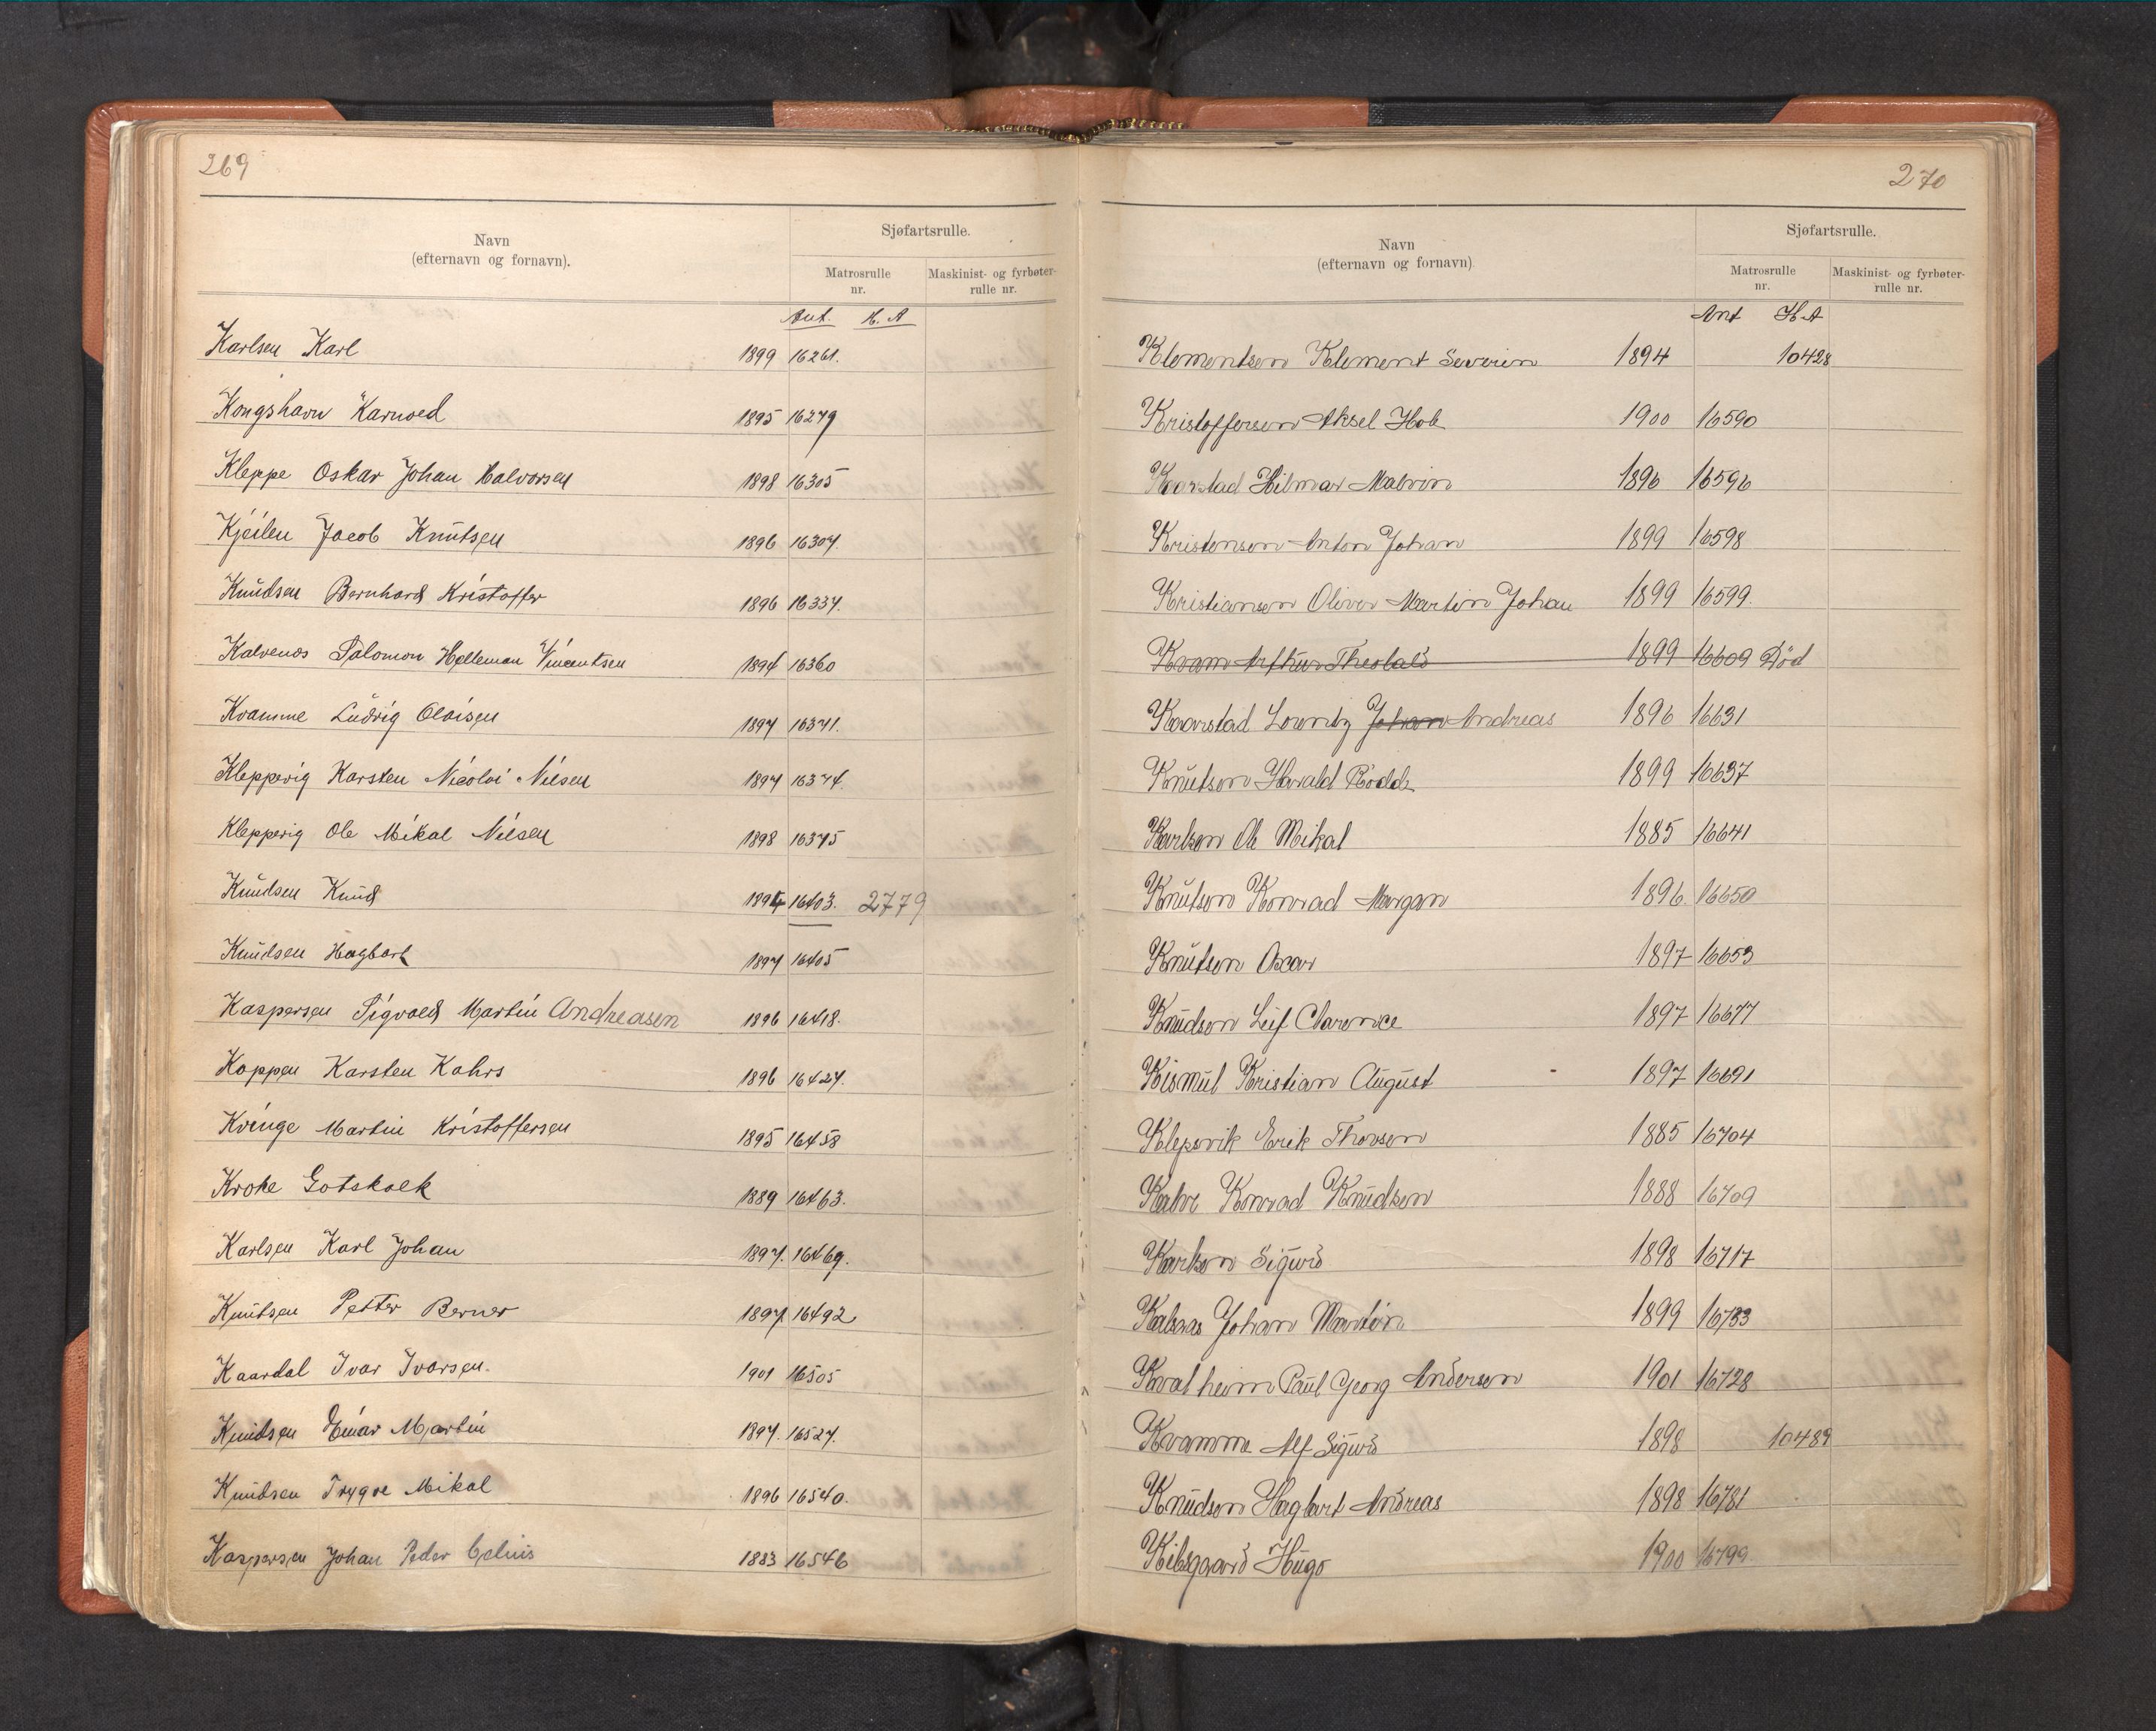 269
Navn
(efternavn og fornavn).
Sjøfartsrulle.
Matrosrulle nr.
Maskinist- og fyrbøter-rulle nr.
Ant. H. A
Karlsen Karl 1899 16261.
Kongshavn Karnoed 1895 16279
Kleppe Oskar Johan Halvorsen 1898 16305
Kjeilen Jacob Knutsen 1896 16307.
Knudsen Bernhard Kristoffer 1896 16337.
Kalvenos Salomon Helleman Vincentsen 1894 16360
Kvamme Ludvig Olaisen 1897 16371.
Kleppevig Karsten Nicolai Nilsen 1897 16374.
Kleppevig Ole Mikal Nilsen 1898 16375
Knudsen Knud 1894 16403. 2779
Knudsen Hagbart 1897 16405
Kaspersen Sigvald Martin Andreasen 1896 16418.
Koppen Karsten Kahrs 1896 16427.
Kvinge Martin Kristoffersen 1895 16458
Kroke Gotskalk 1889 16463.
Karlsen Karl Johan 1897. 16469.
Knutsen Petter Berner 1897 16492
Kaardal Ivar Ivarsen. 1901 16505
Knudsen Einar Martin 1897. 16527.
Knudsen Trygve Mikal 1896 16540.
Kaspersen Johan Peder Celius 1883 16546
270
Navn
(efternavn og fornavn)
Sjøfartsrulle.
Matrosrulle nr.
Maskinist- og fyrbøter-rulle nr.
Ant H.A
Klementsen Klement Severin 1894 10428
Kristoffersen Aksel Hol 1900 16590
Kaarstad Hilmar Malvin 1896 16596
Kristensen Anton Johan 1899 16598
Kristiansen Oliver Martin Johan 1899 16599.
Kvam Arthur Theobald 1899 16609 Död
Kaarstad Lauritz Johan Andreas 1896 16631
Knutsen Harald Rodde 1899 16637
Karlsen Ole Mikal 1885 16641
Knutsen Konrad Margan 1896. 16650
Knutsen Oscar 1897 16653
Knudsen Leif Clarence 1897 16677
Kismul Kristian August 1897 16691
Klepsvik Erik Thorsen 1885 16704
Kahr Konrad Knudsen 1888 16709
Karlsen Sigurd 1898 16717
Kalsaas Johan Martin 1899 16733
Kvalheim Paul Georg Andersen 1901 16728
Kvamme Alf Sigurd 1898 10489
Knudsen Hagbart Andreas 1898 16781
Kilsgaard Hugo 1900 16799